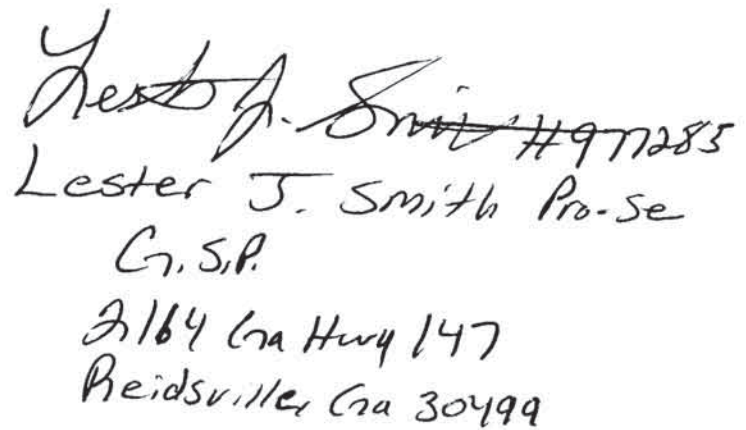 Lester J. Smith #977285
Lester J. Smith Pro-se
G.S.P.
2164 Ga Hwy 147
Reidsville, Ga 30499